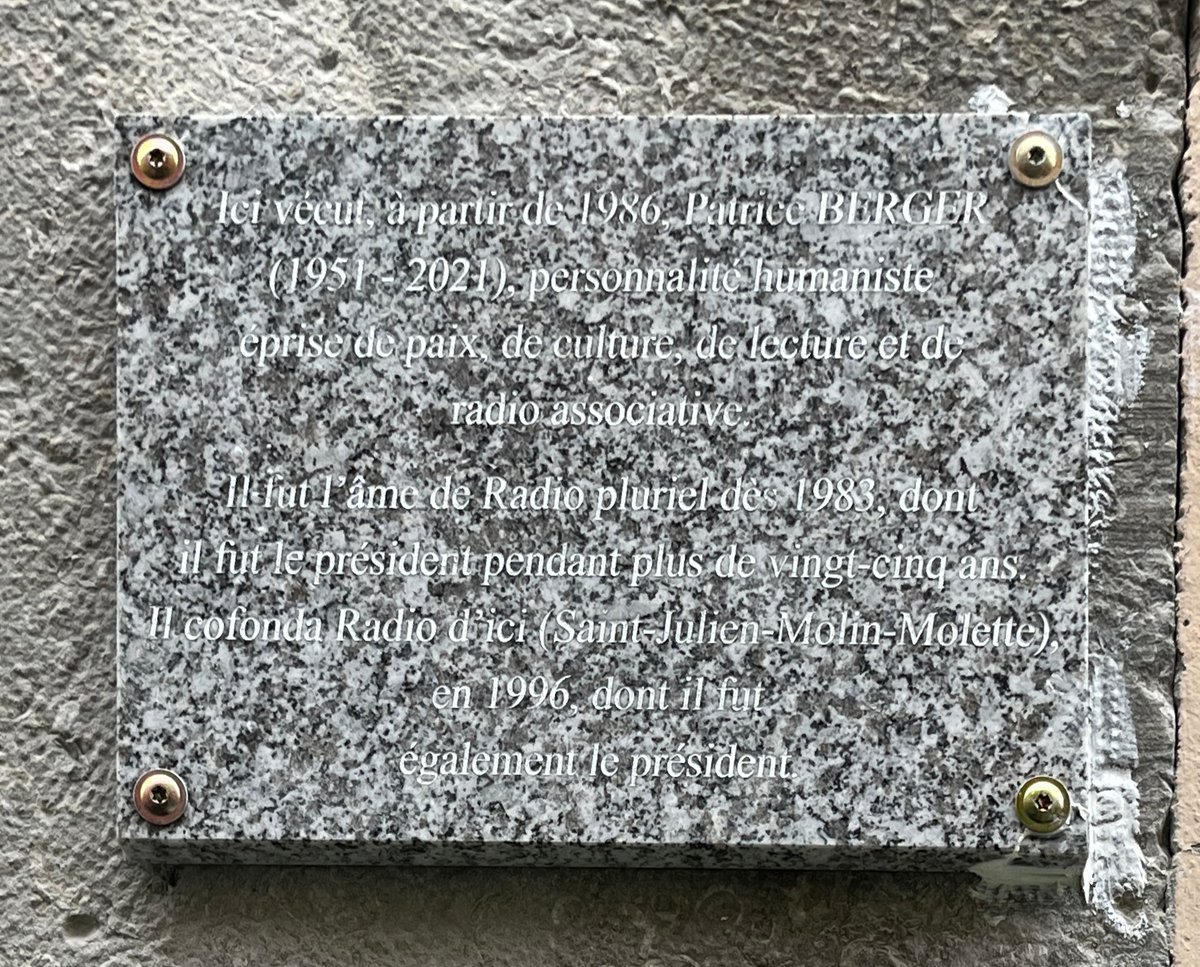 Ici vécut, à partir de 1986, Patrice BERGER
(1951 - 2021), personnalité humaniste
éprise de paix, de culture, de lecture et de
radio associative.
Il fut l'âme de Radio pluriel dès 1983, dont
il fut le président pendant plus de vingt-cinq ans.
Il cofonda Radio d'ici (Saint-Julien-Molin-Molette),
en 1996, dont il fut
également le président.